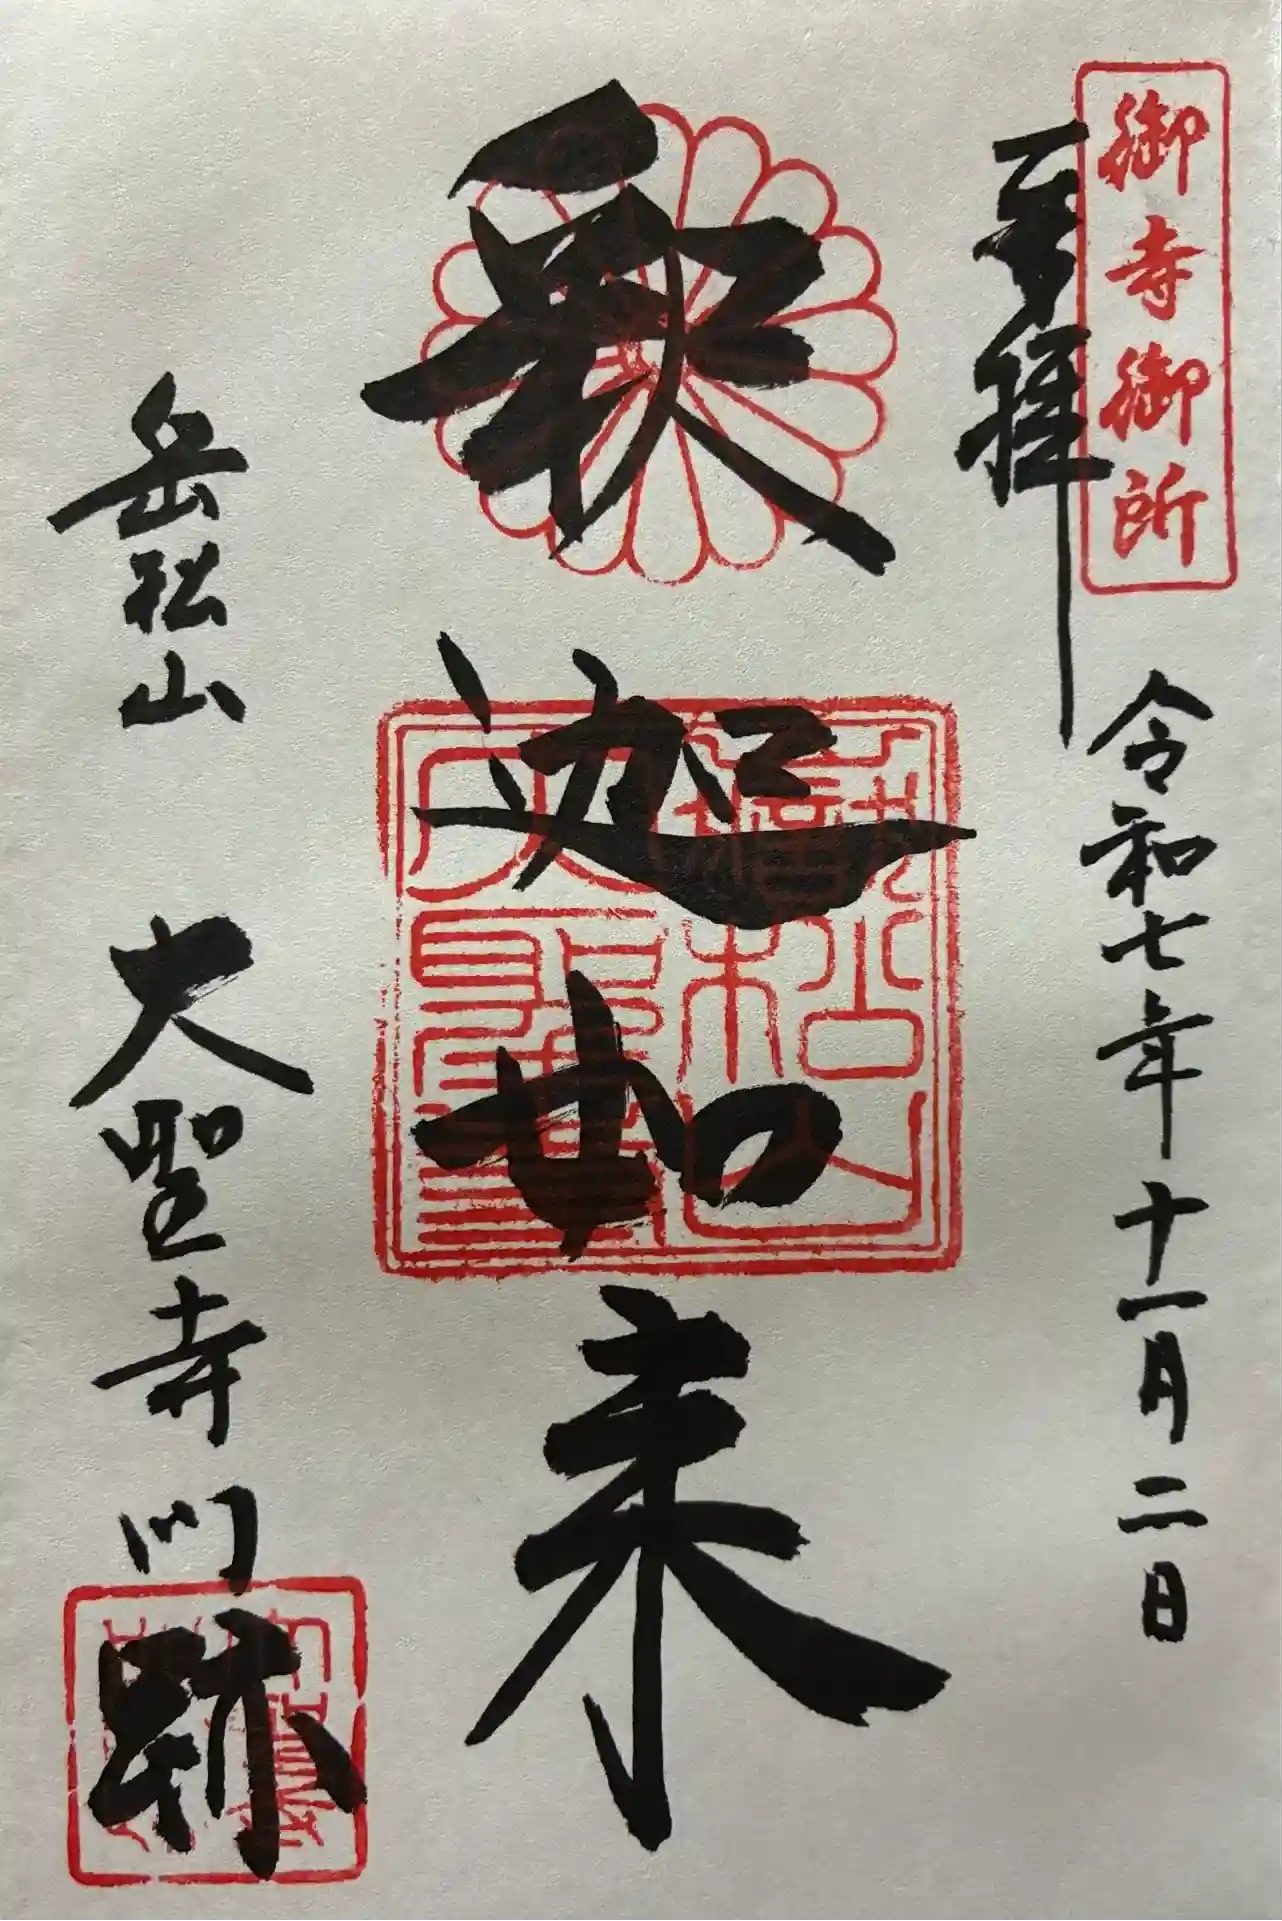 御寺御所
奉拝
令和七年十一月二日
釈迦如来
岳松山 大聖寺門跡